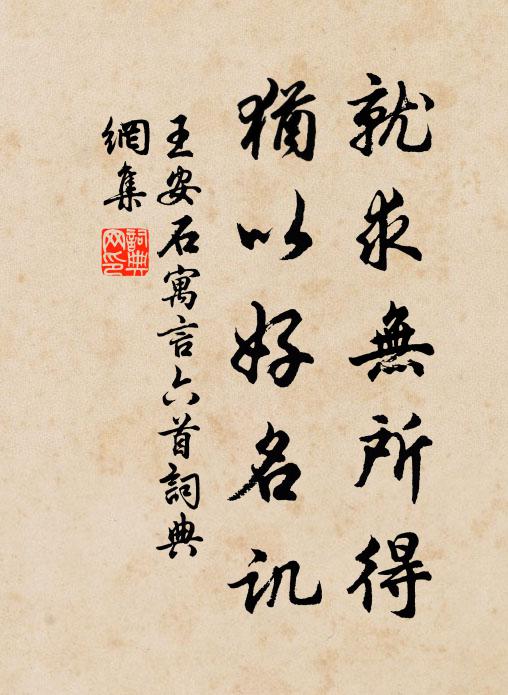 就求無所得
猶以好名讥
王安石寓言六首詞典
網集
詞典
网印